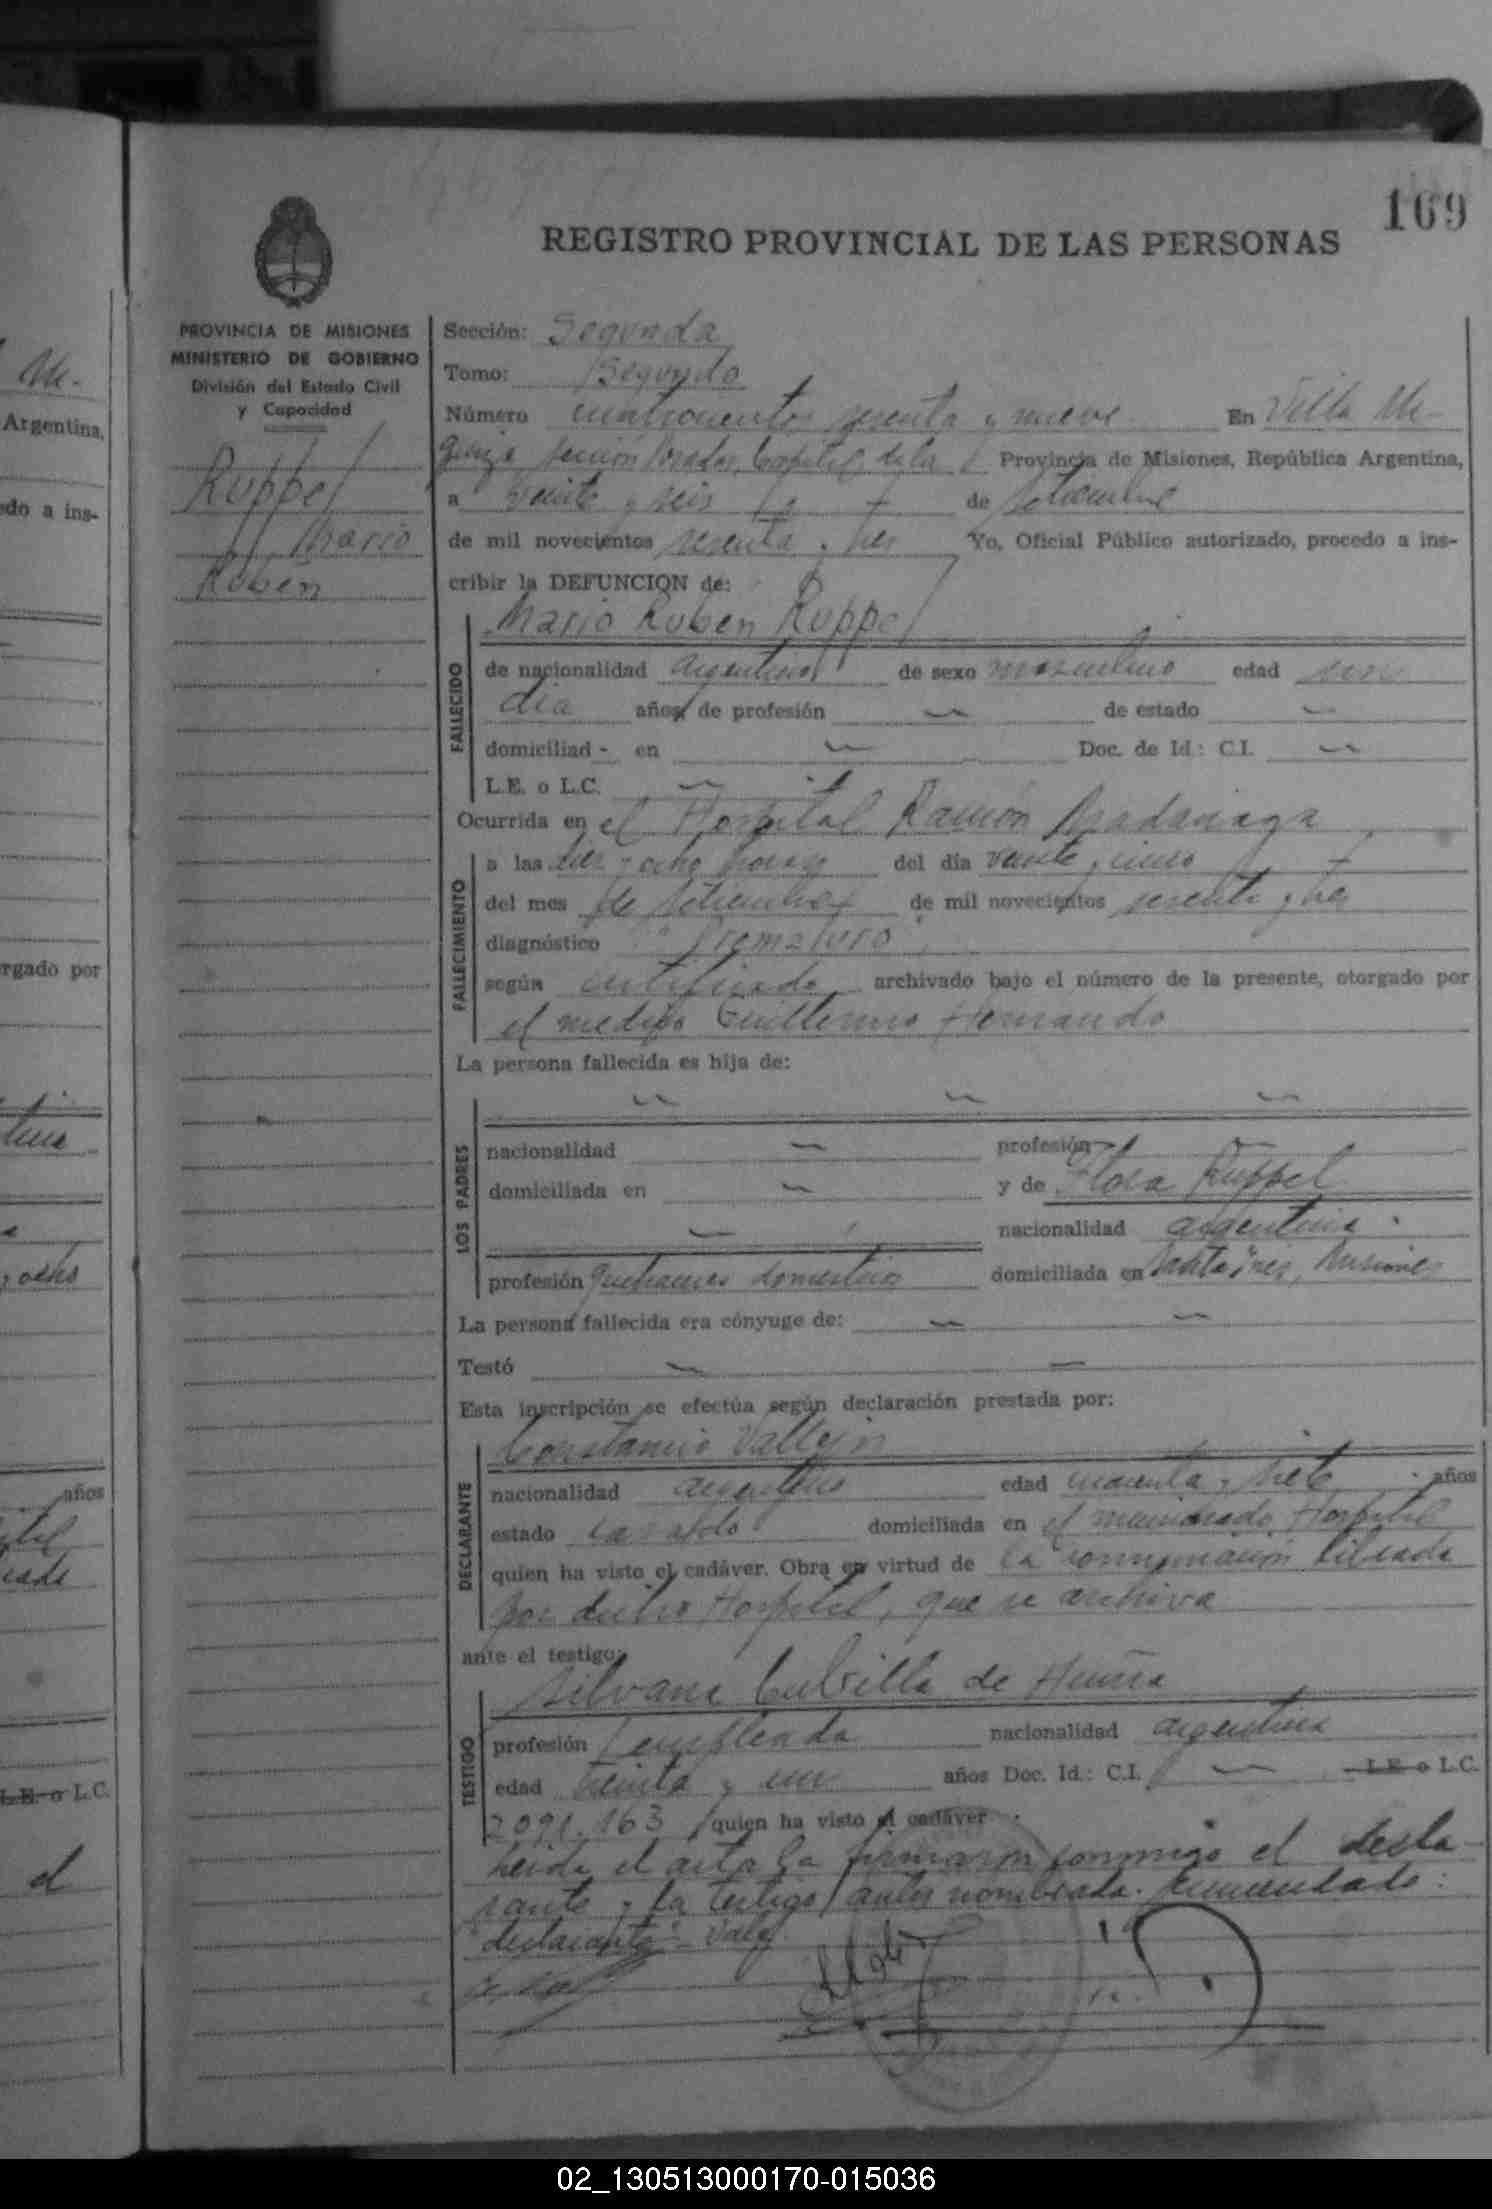 169
REGISTRO PROVINCIAL DE LAS PERSONAS
PROVINCIA DE MISIONES
MINISTERIO DE GOBIERNO
División del Estado Civil
y Capacidad
Ruppel
Mario
Ruben
Sección: Segunda
Tomo: Segundo
Número cuatrocientos sesenta y nueve En Villa Ur-
quiza sección Posadas, Capital de la Provincia de Misiones, República Argentina,
a veinte y seis de setiembre
de mil novecientos sesenta y tres Yo, Oficial Público autorizado, procedo a ins-
cribir la DEFUNCION de:
Mario Ruben Ruppel
FALLECIDO
de nacionalidad argentino de sexo masculino edad un
dia años, de profesión — de estado —
domiciliad - en — Doc. de Id.: C.I. —
L.E. o L.C. —
Ocurrida en el Hospital Ramón Madariaga
FALLECIMIENTO
a las diez y ocho horas del día veinte y cinco
del mes de setiembre de mil novecientos sesenta y tres
diagnóstico "Prematuro"
según certificado archivado bajo el número de la presente, otorgado por
el medico Guillermo Hernando
La persona fallecida es hija de:
LOS PADRES
— — —
nacionalidad — profesión —
domiciliada en — y de Flora Ruppel
— nacionalidad argentina
profesión quehaceres domesticos domiciliada en Santa Ines, Misiones
La persona fallecida era cónyuge de: — —
Testó — —
Esta inscripción se efectúa según declaración prestada por:
DECLARANTE
Constancio Vallejo
nacionalidad argentino edad cuarenta y siete años
estado casado domiciliada en el mencionado Hospital
quien ha visto el cadáver. Obra en virtud de la comunicación librada
por dicho Hospital, que se archiva
ante el testigo:
TESTIGO
Silvana de
profesión empleada nacionalidad argentina
edad treinta y un años Doc. Id.: C.I. — L.E. o L.C.
2091.163 quien ha visto el cadáver
Leida el acta la firmaron conmigo el decla-
rante y la testigo antes nombrada. Enmendado:
"declarante" Vale
Argentina,
procedo a ins-
otorgado por
años
L.E. o L.C.
02_130513000170-015036